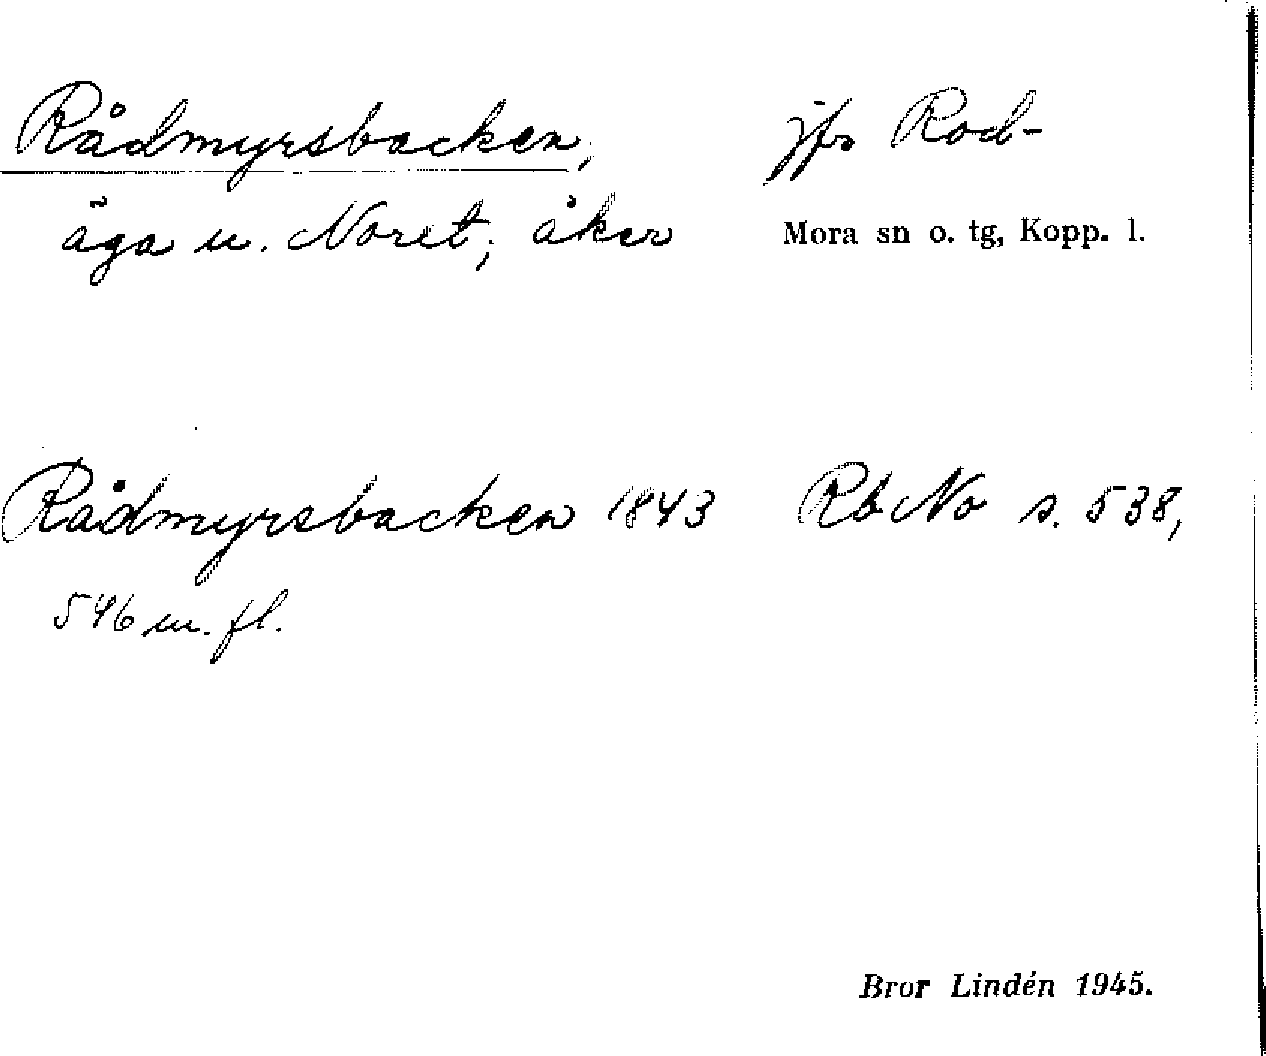 Rådmyrsbacken, jfr Rod-
äga u. Noret, åker Mora sn o. tg, Kopp. l.
Rådmyrsbacken 1843 Rb No s. 538,
546 m. fl.
Bror Lindén 1945.